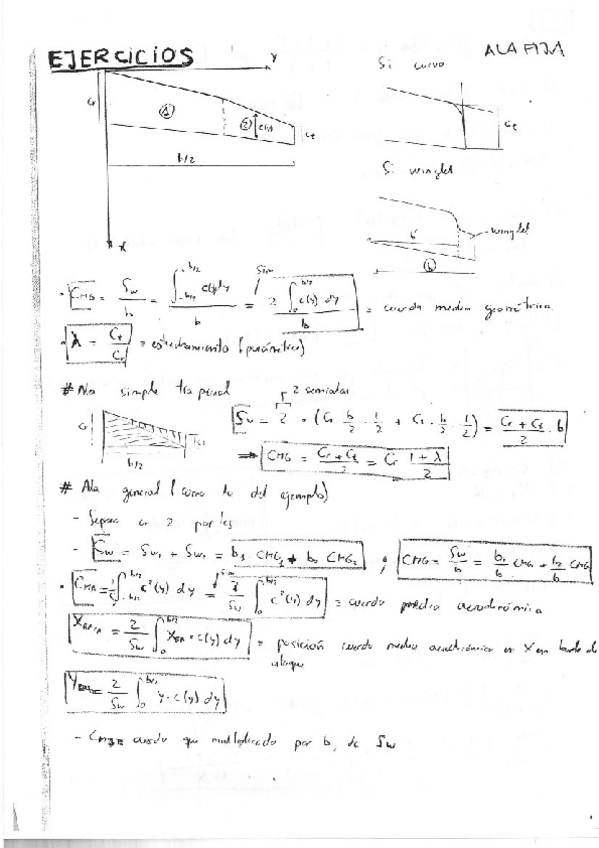 EJERCICIOS
ALA FIJA
y
Si curvo
Cr
①
②
c(y)
Ct
b/2
x
Ct
Si winglet
winglet
b'
b
· CMG = Sw/b = ∫_{-b/2}^{b/2} c(y) dy / b = (Sim) 2 ∫_0^{b/2} c(y) dy / b = cuerda media geométrica
· λ = Ct/Cr = estrechamiento (parámetro)
# Ala simple trapecial
2 semialas
Sw = 2 · (Cr b/2 · 1/2 + Ct · b/2 · 1/2) = (Cr + Ct)/2 · b
Cr
Ct
b/2
⇒ CMG = (Cr + Ct)/2 = Cr (1 + λ)/2
# Ala general (como la del ejemplo)
- Separo en 2 partes
- Sw = Sw1 + Sw2 = b1 CMG1 + b2 CMG2 ; CMG = Sw/b = b1/b CMG + b2/b CMG
· CMA = ∫_{-b/2}^{b/2} c²(y) dy = (sim) 2/Sw ∫_0^{b/2} c²(y) dy = cuerda media aerodinámica
= 2/Sw ∫_0^{b/2} XBA · c(y) dy = posición cuerda media aerodinámica en X en borde de
ataque
= 2/Sw ∫_0^{b/2} y · c(y) dy
- CMG = cuerda que multiplicada por b, da Sw